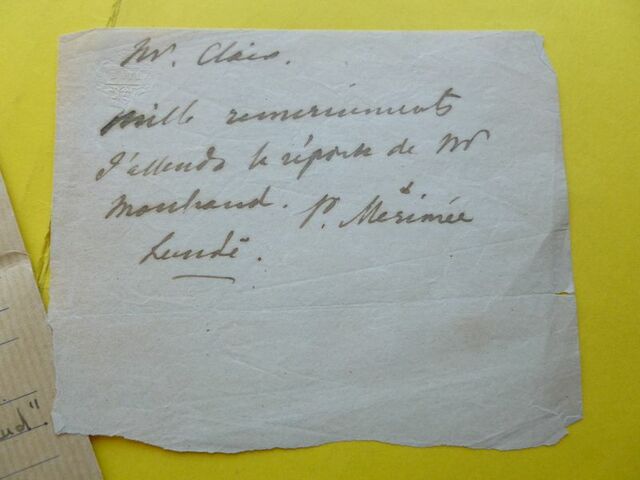 Mr. Clais.
mille remerciements
J'attends la réponse de Mr
Mouhaud. P. Mérimée
Lundi.